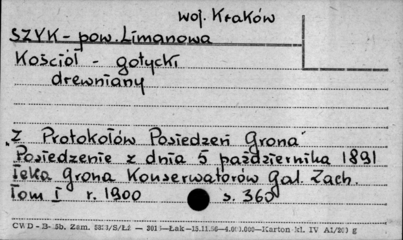 woj. Kraków
SZYK - pow. Limanowa
Kościół - gotycki
drewniany
"Z Protokołów Posiedzeń Grona"
Posiedzenie z dnia 5 października 1891
Teka Grona Konserwatorów Gal. Zach.
Tom I r. 1900 s. 360
CWD - B- Zam. - Łak - 15.11.56 - 4.000.000 - Karton kl. IV A1/200 g